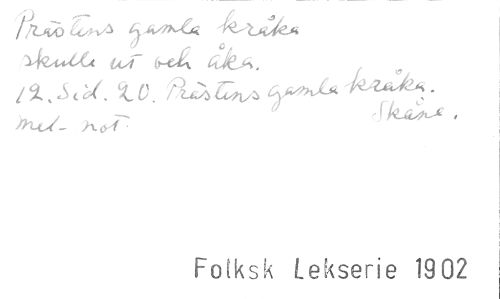 Prästens gamla kråka
skulle ut och åka.
12. Sid. 20. Prästens gamla kråka.
Mel-not. Skåne.
Folksk Lekserie 1902